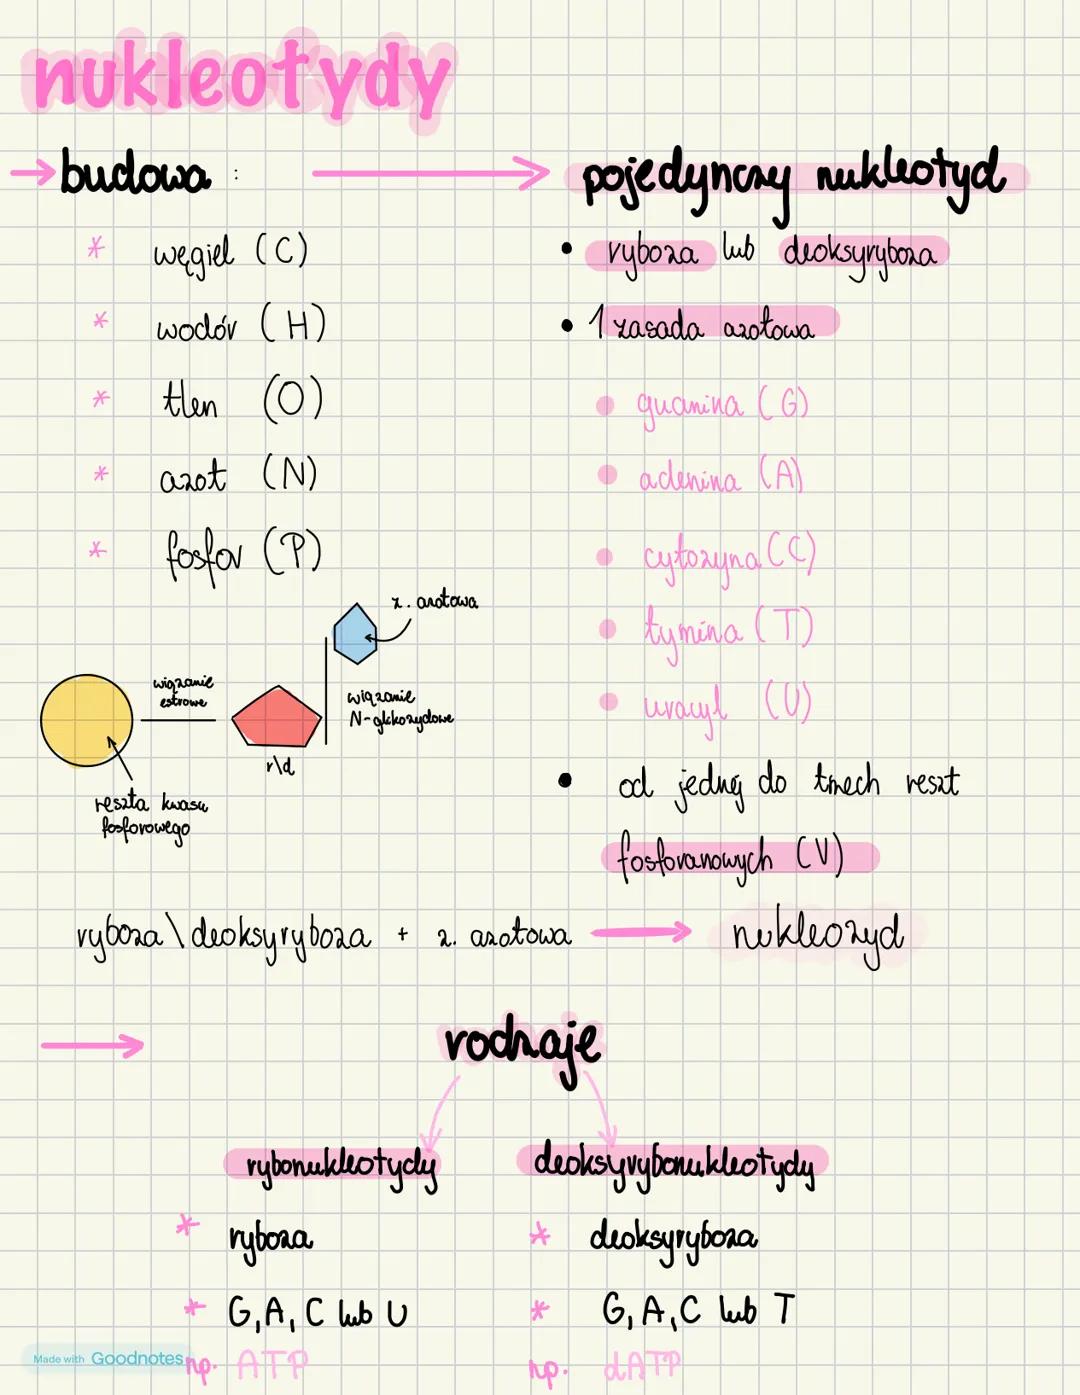 nukleotydy
budowa :
węgiel (C)
wodór (H)
tlen (O)
azot (N)
fosfor (P)
z. azotowa
wiązanie
estrowe
wiązanie
N-glikozydowe
r\d
reszta kwasu
fosforowego
pojedynczy nukleotyd
• ryboza lub deoksyryboza
• 1 zasada azotowa
• guanina (G)
• adenina (A)
• cytozyna (C)
• tymina (T)
• uracyl (U)
• od jednej do trzech reszt
fosforanowych (V)
ryboza \ deoksyryboza + z. azotowa → nukleozyd
→ rodzaje
rybonukleotydy
* ryboza
* G, A, C lub U
np. ATP
deoksyrybonukleotydy
* deoksyryboza
* G, A, C lub T
np. dATP
Made with Goodnotes